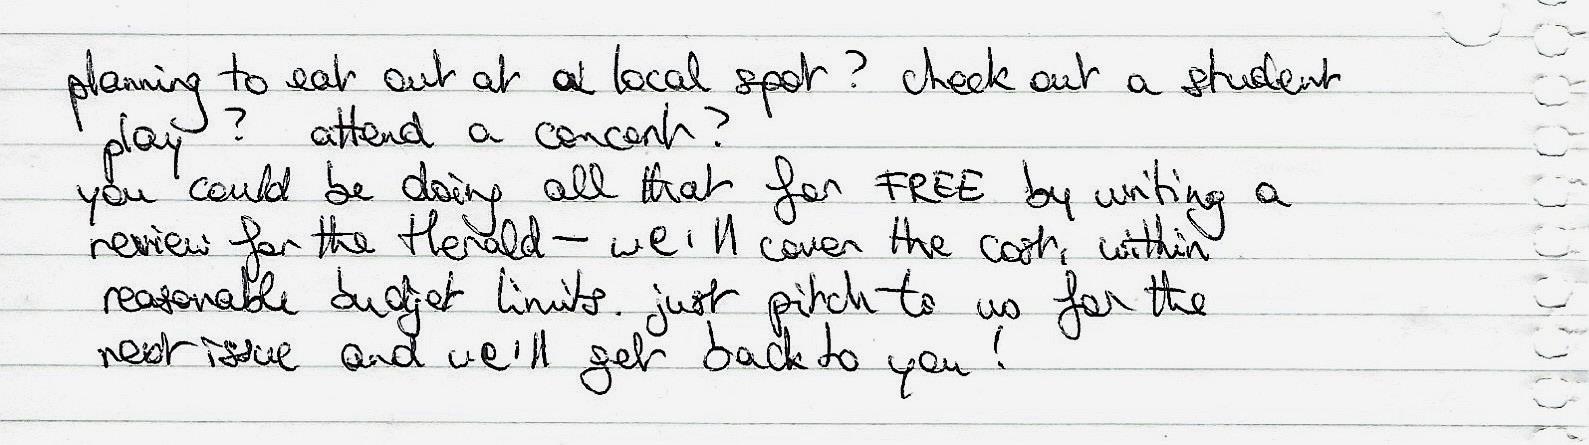 planning to eat out at a local spot? check out a student
play? attend a concert?
you could be doing all that for FREE by writing a
review for the Herald - we'll cover the cost, within
reasonable budget limits. just pitch to us for the
next issue and we'll get back to you!